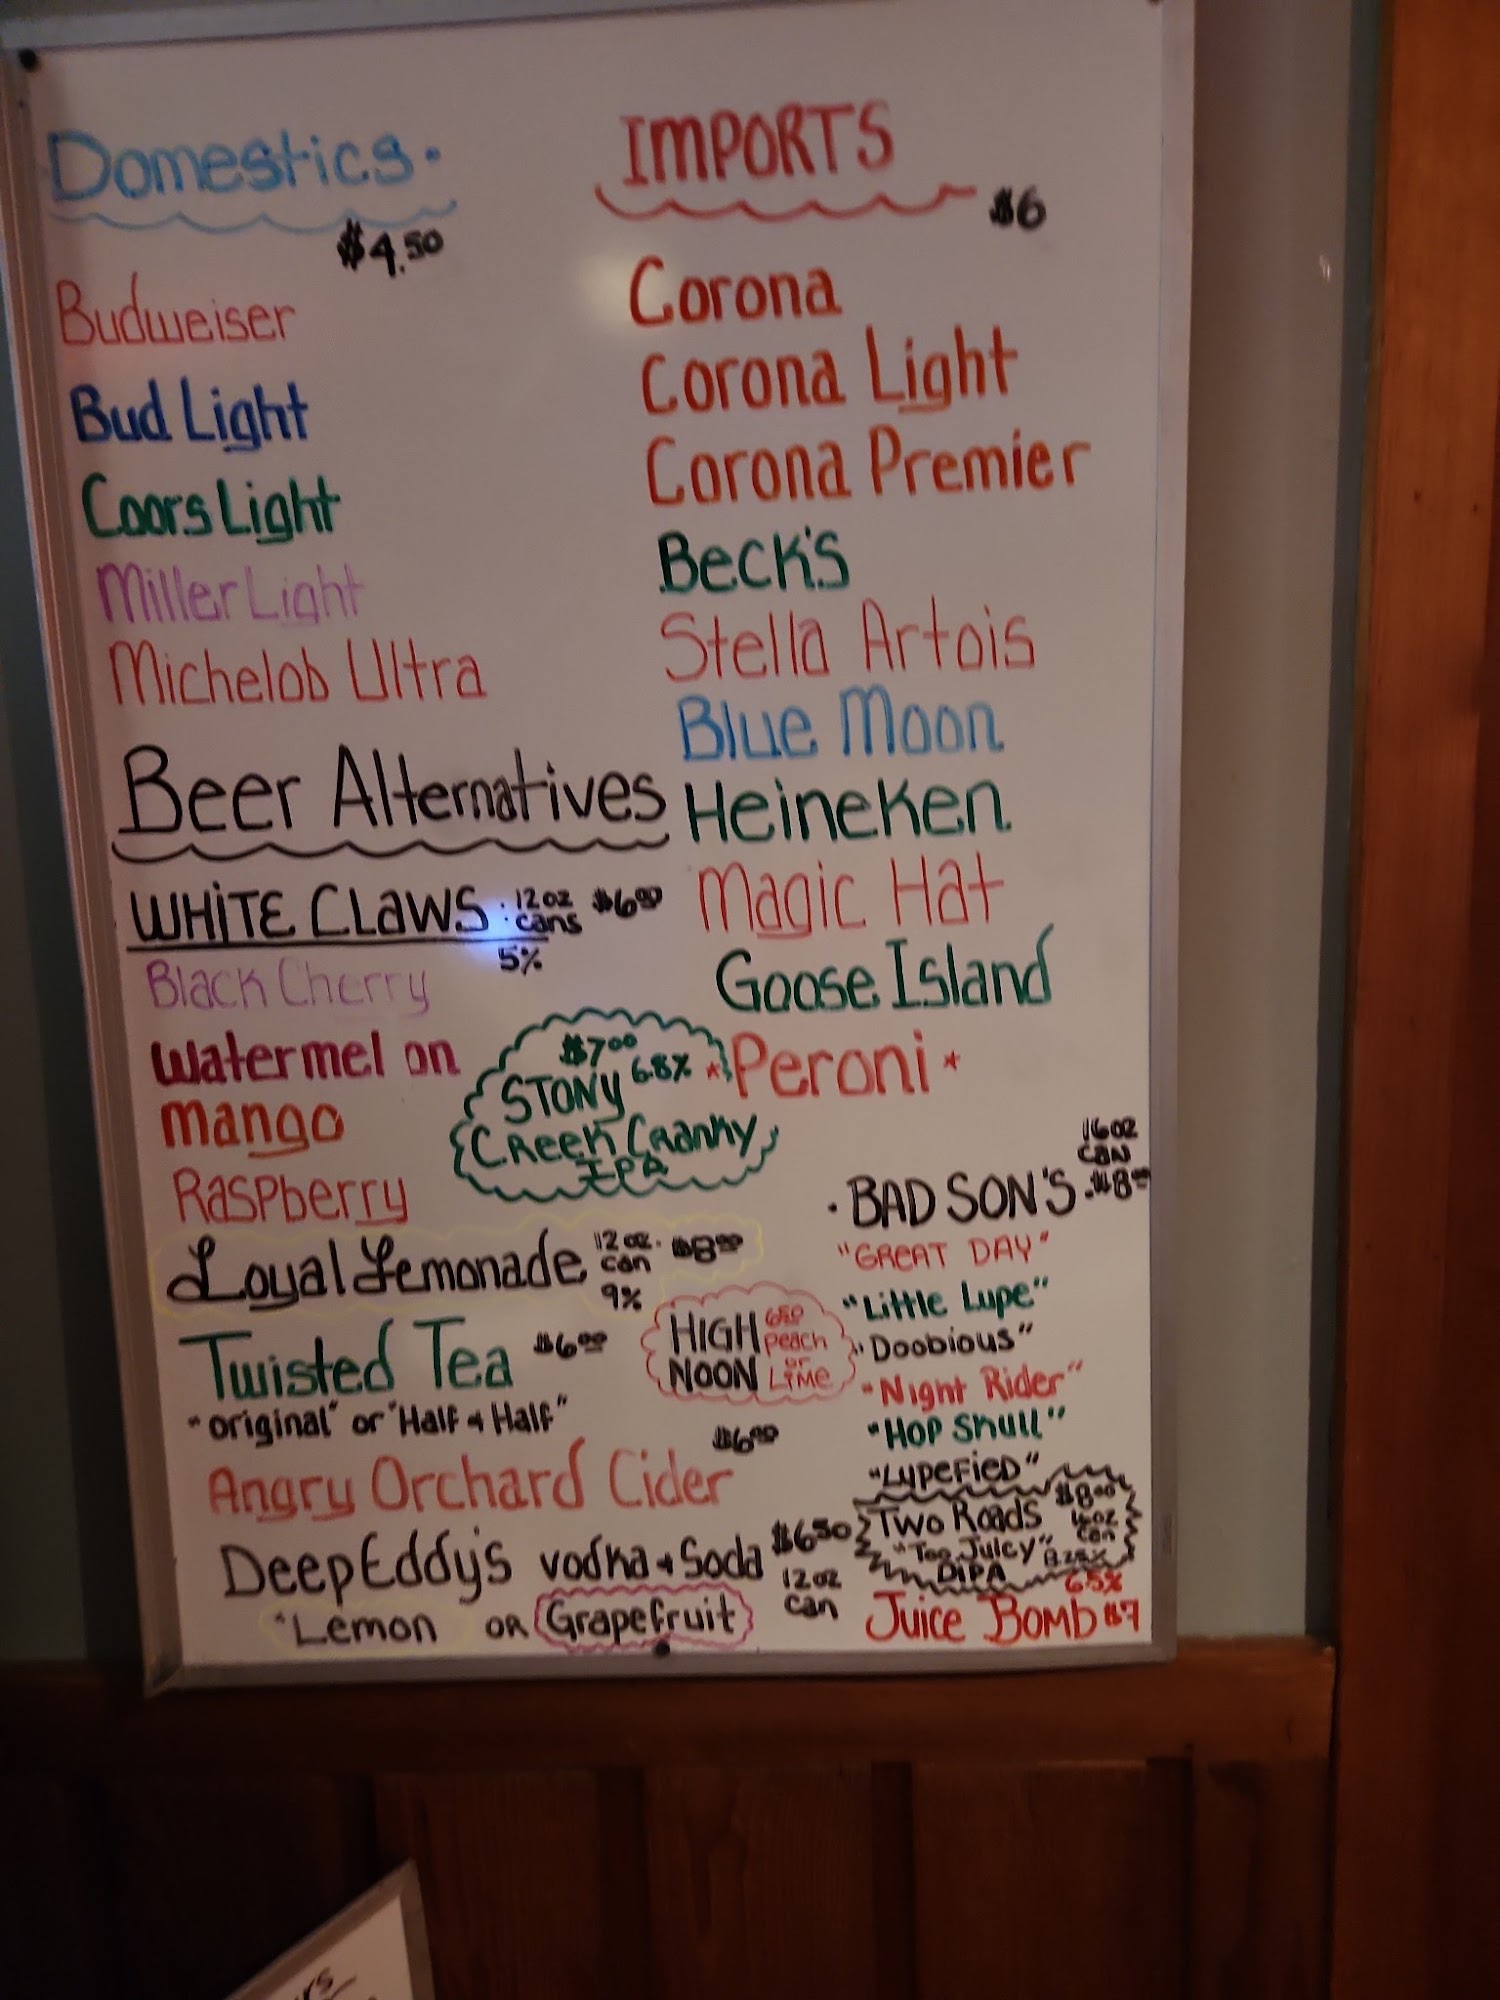 Domestics.
$4.50
Budweiser
Bud Light
Coors Light
Miller Light
Michelob Ultra
Beer Alternatives
WHITE CLAWS: 12oz cans $6.00
5%
Black Cherry
Watermelon
Mango
Raspberry
$7.00
STONY 6.8%
Creek Cranky
IPA
Loyal Lemonade 12oz. can $8.00
9%
Twisted Tea $6.00
"original" or "Half & Half"
HIGH NOON 650 Peach or Lime
Angry Orchard Cider $6.00
Deep Eddy's vodka & Soda $6.50
12oz can
"Lemon OR Grapefruit
IMPORTS
$6
Corona
Corona Light
Corona Premier
Beck's
Stella Artois
Blue Moon
Heineken
Magic Hat
Goose Island
*Peroni*
16oz can
· BAD SON'S · $8.00
"GREAT DAY"
"Little Lupe"
"Doobious"
"Night Rider"
"Hop Skull"
"Lupefied"
Two Roads $8.00
"Too Juicy" 16oz can
DIPA
6.5%
Juice Bomb $7